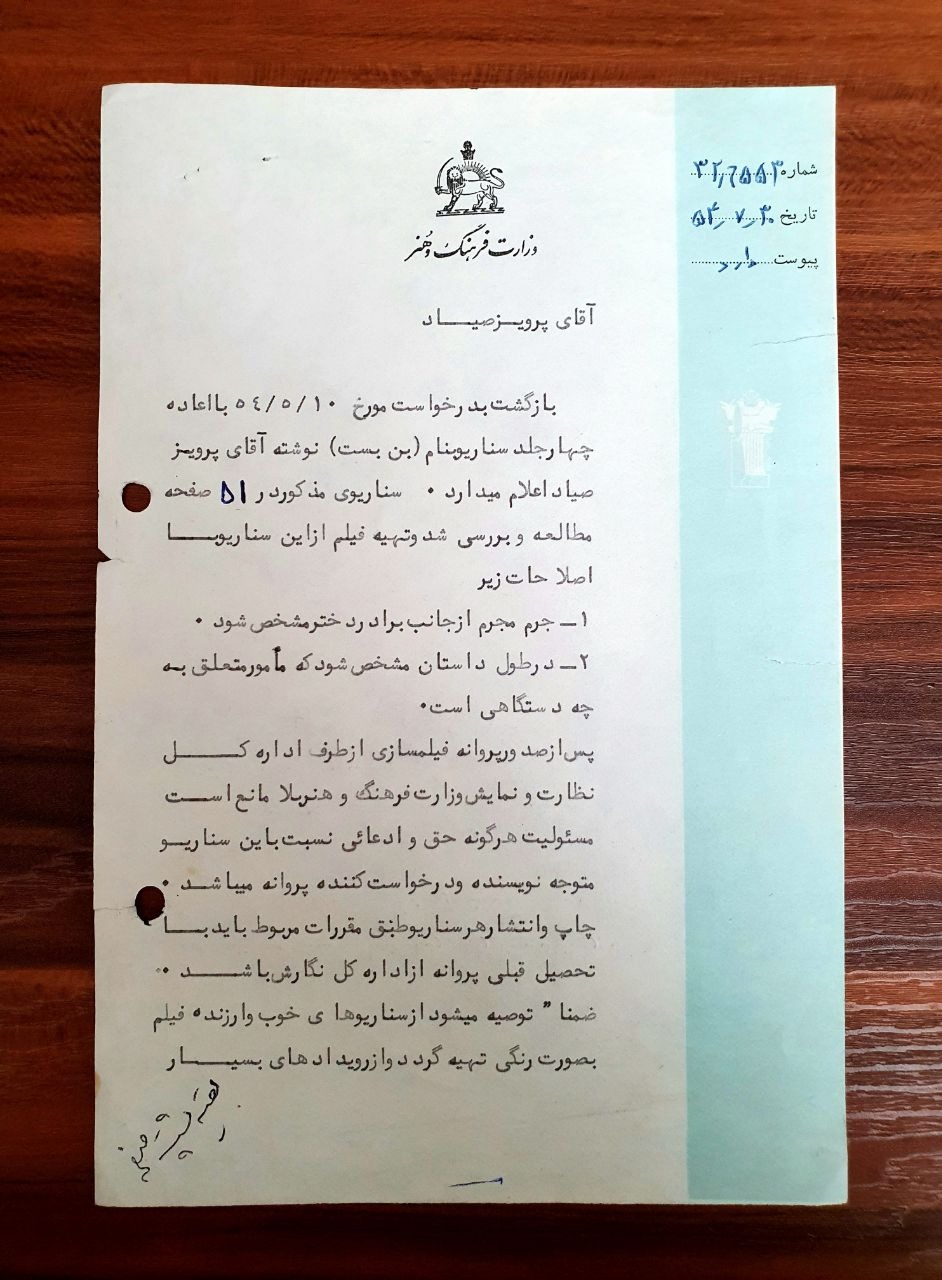 شماره ۳۲٫۶۵۵۳
تاریخ ۵۴٫۷٫۳۰
پیوست دارد
وزارت فرهنگ و هنر
آقای پرویز صیاد
بازگشت بدرخواست مورخ ۵۴/۵/۱۰ با اعاده
چهار جلد سناریو بنام (بن بست) نوشته آقای پرویز
صیاد اعلام میدارد ۰ سناریوی مذکور در ۵۱ صفحه
مطالعه و بررسی شد و تهیه فیلم از این سناریو با
اصلاحات زیر
۱ـ جرم مجرم از جانب برادر دختر مشخص شود ۰
۲ـ در طول داستان مشخص شود که مأمور متعلق به
چه دستگاهی است۰
پس از صدور پروانه فیلمسازی از طرف اداره کل
نظارت و نمایش وزارت فرهنگ و هنر بلا مانع است
مسئولیت هرگونه حق و ادعائی نسبت باین سناریو
متوجه نویسنده و درخواست کننده پروانه میباشد ۰
چاپ و انتشار هر سناریو طبق مقررات مربوط باید با
تحصیل قبلی پروانه از اداره کل نگارش باشد ۰۰
ضمنا" توصیه میشود از سناریوها ی خوب و ارزنده فیلم
بصورت رنگی تهیه گردد و از رویدادهای بسیار
بقیه پشت صفحه